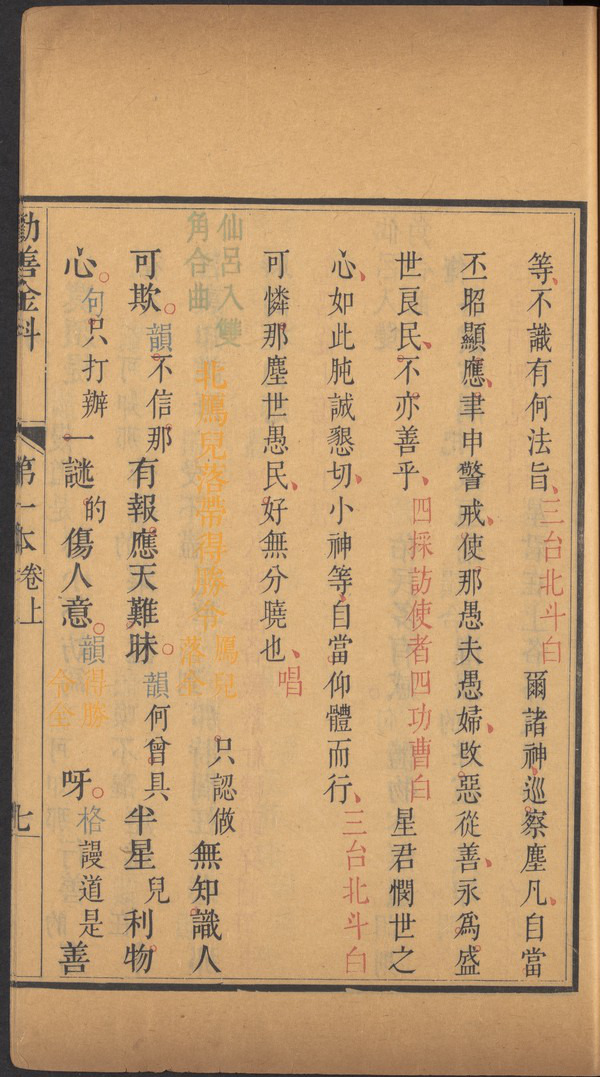 等不識有何法旨三台北斗白爾諸神巡察塵凡自當
丕昭顯應聿申警戒使那愚夫愚婦攺惡從善永爲盛
世良民不亦善乎四採訪使者四功曹白星君憫世之
心如此肫誠懇切小神等自當仰體而行三台北斗白
可憐那塵世愚民好無分曉也唱
仙呂入雙
角合曲
北鴈兒落帶得勝令
鴈兒
落全
只認做無知識人
可欺韻不信那有報應天難昧韻何曾具半星兒利物
心句只打辦一謎的傷人意韻
得勝
令全
呀格謾道是善
勸善金科
第一本卷上
七